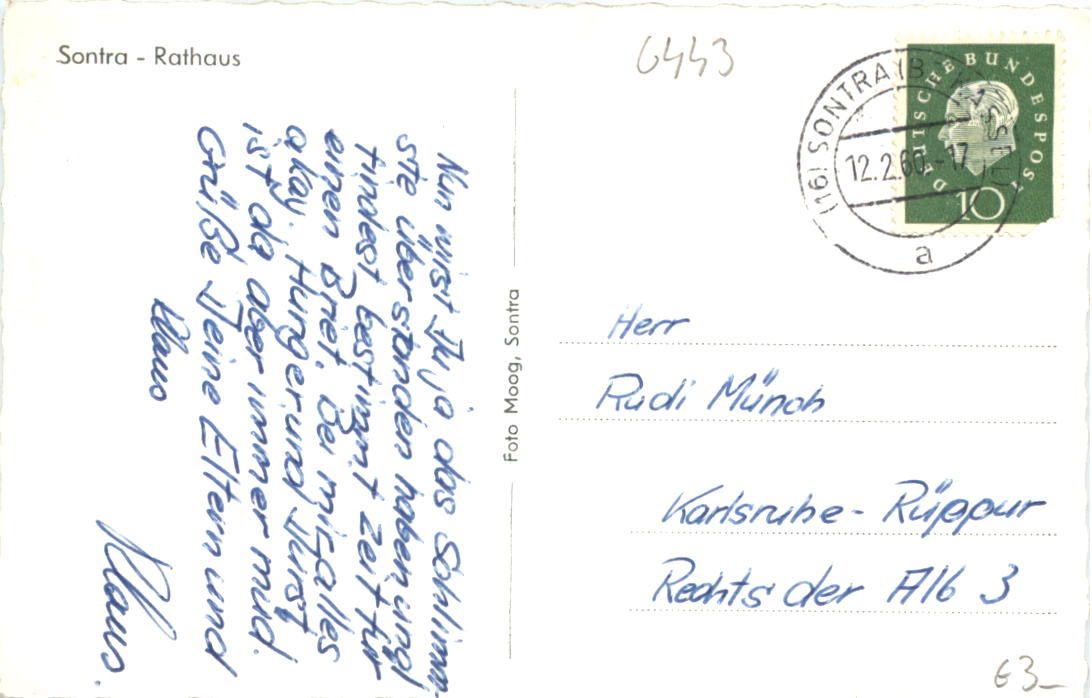 Sontra - Rathaus
6443
(16) SONTRA (BZ KASSEL)
12.2.60.-17
a
DEUTSCHE BUNDESPOST
10
Nun wirst Du ja das Schlimm-
ste überstanden haben und
findest bestimmt Zeit für
einen Brief. Bei mir alles
okay. Hunger und Durst
ist da aber immer
Grüße Deine Eltern und
Klaus
Klaus.
Foto Moog, Sontra
Herr
Rudi Münch
Karlsruhe - Rüppur
Rechts der Alb 3
€3_